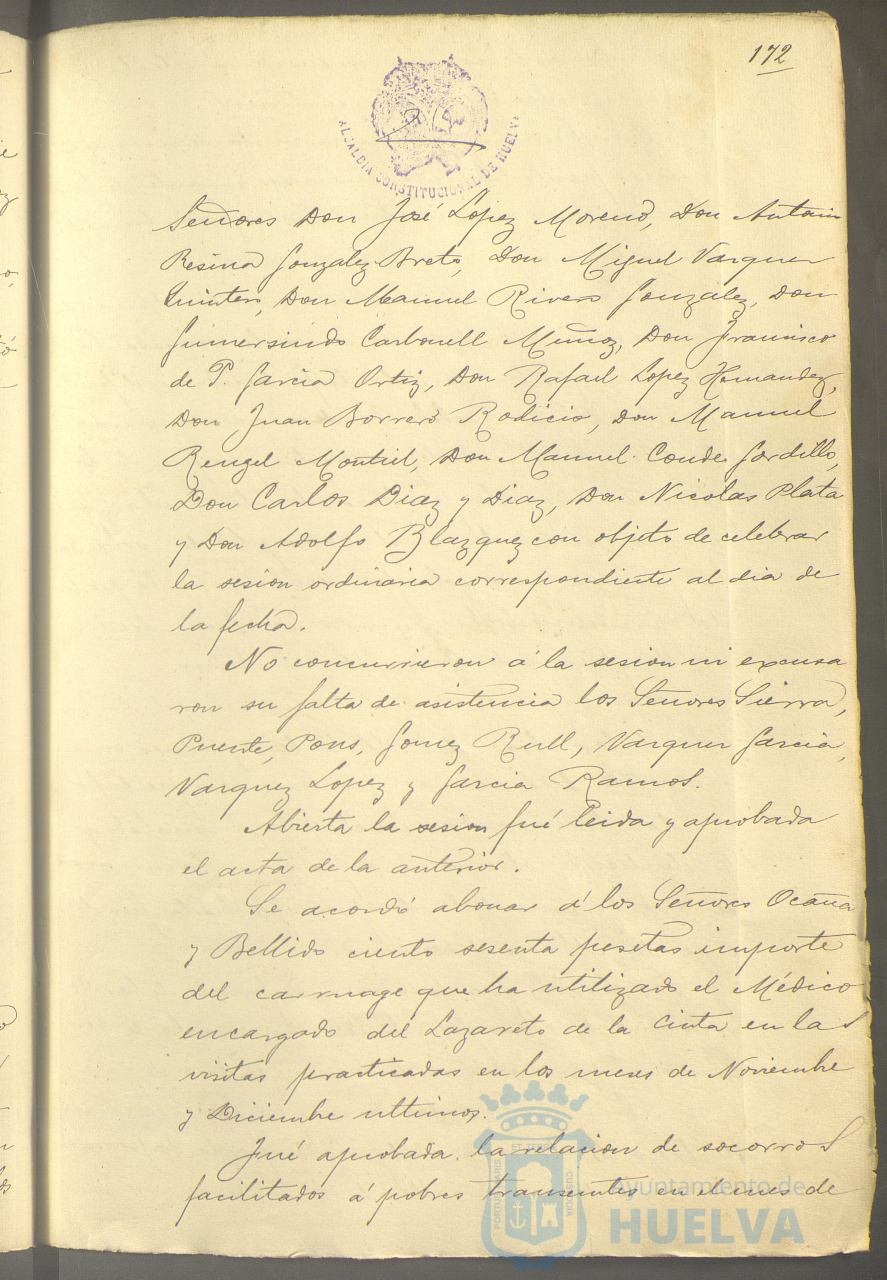 172
ALCALDIA CONSTITUCIONAL DE HUELVA
Señores Don José Lopez Moreno, Don Antonio
Resina Gonzalez Breto, Don Miguel Vazquez
Quintero, Don Manuel Rivero Gonzalez, Don
Gumersindo Carbonell Muñoz, Don Francisco
de P. Garcia Ortiz, Don Rafael Lopez Hernandez,
Don Juan Borrero Rodicio, Don Manuel
Rengel Montiel, Don Manuel Conde Gordillo,
Don Carlos Diaz y Diaz, Don Nicolas Plata
y Don Adolfo Blazquez con objeto de celebrar
la sesion ordinaria correspondiente al dia de
la fecha.
No concurrieron á la sesion ni excusa
ron su falta de asistencia los Señores Sierra,
Puente, Pons, Gomez Rull, Vazquez Garcia,
Vazquez Lopez y Garcia Ramos.
Abierta la sesion fué leida y aprobada
el acta de la anterior.
Se acordó abonar á los Señores Ocaña
y Bellido ciento sesenta pesetas importe
del carruage que ha utilizado el Médico
encargado del Lazareto de la Cinta en las
visitas practicadas en los meses de Noviembre
y Diciembre ultimos.
Fué aprobada la relacion de socorros
facilitados á pobres transeuntes en el mes de
PORTUS MARIS ET TERRAE CUSTODIA
Ayuntamiento de
HUELVA